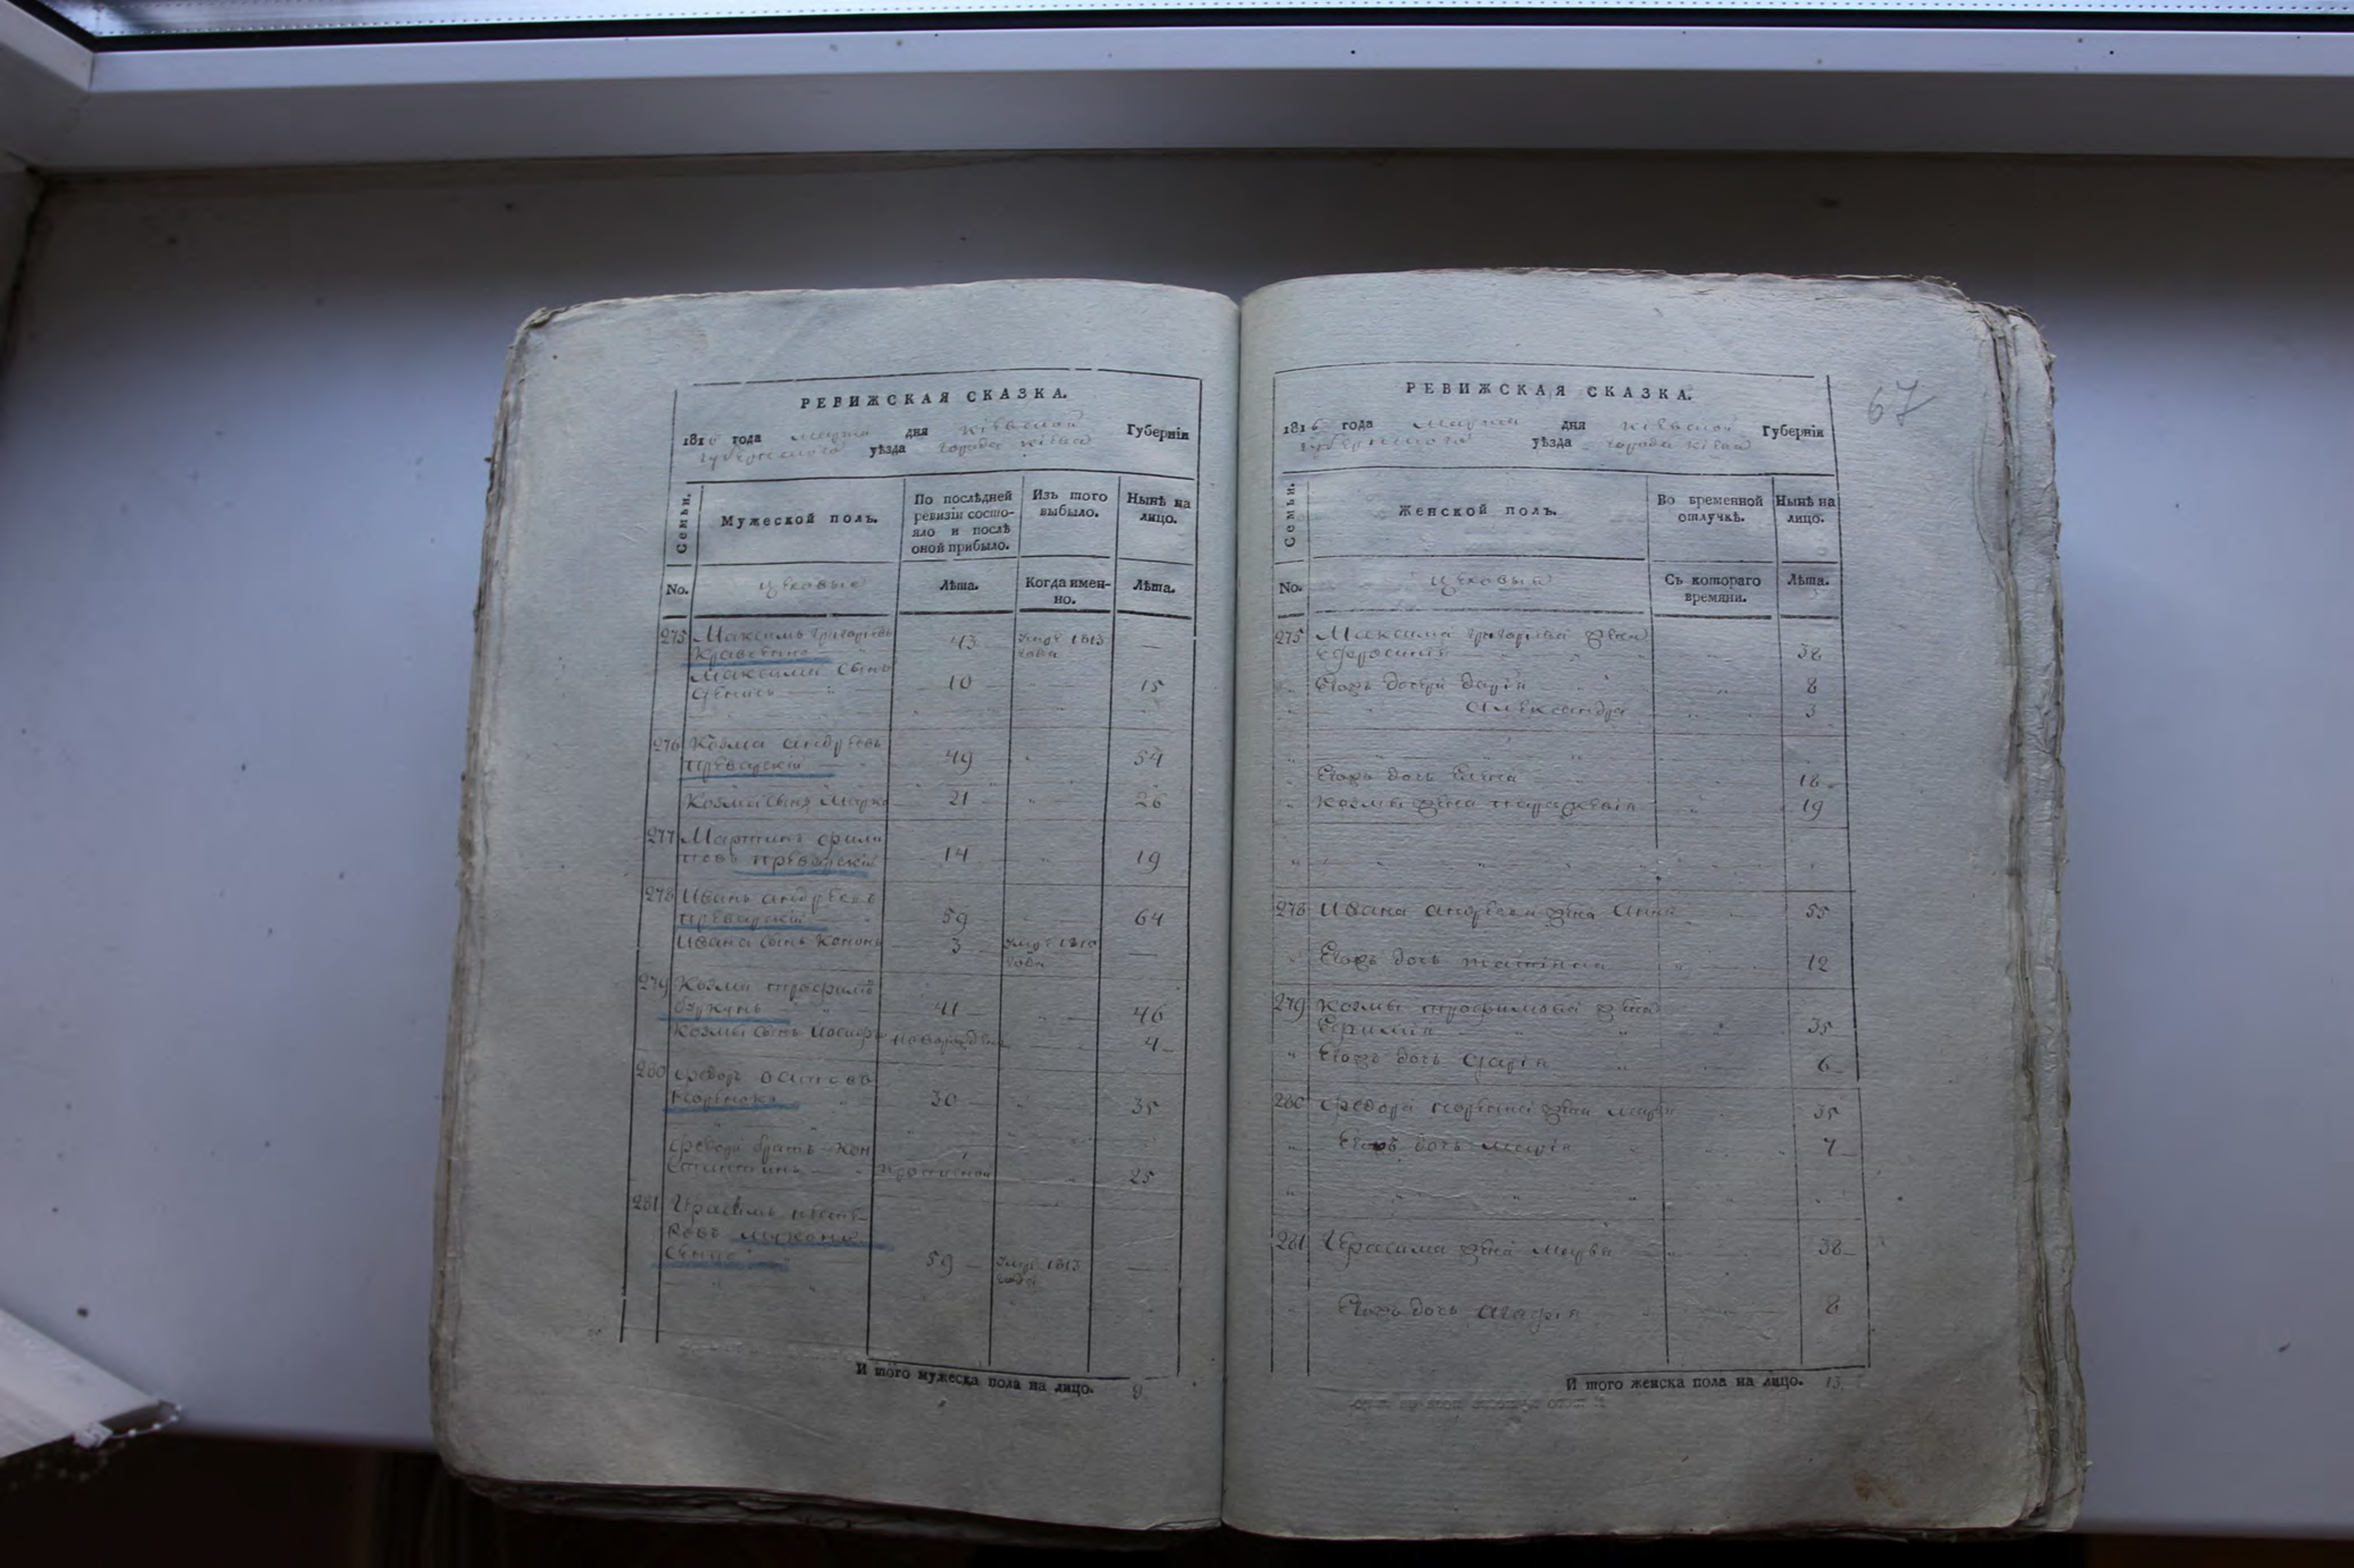 РЕВИЖСКАЯ СКАЗКА.
1816 года марта дня Кіевской Губерніи
Губернского уѣзда города Кіева
Семьи.
Мужеской полъ.
По послѣдней ревизіи состояло и послѣ оной прибыло.
Изъ того выбыло.
Нынѣ на лицо.
No. цеховые Лѣта. Когда именно. Лѣта.
275 Максимъ Григорьевъ 43 умре 1813
Кравченко года —
Максима сынъ
Денисъ 10 15
276 Козма Андреевъ
Преварскій 49 54
Козмы сынъ Марко 21 26
277 Мартинъ Фили
повъ Преварскій 14 19
278 Иванъ Андреевъ
Преварскій 59 64
Ивана сынъ Кононъ 3 умре 1810
года —
279 Козма Трофимовъ
41 46
Козмы сынъ Иосифъ новорожденъ 4
280 Федоръ Осиповъ
30 35
Федора братъ Кон
стантинъ 25
281 Герасимъ
59 умре 1813
года —
И того мужеска пола на лицо. 9
67
РЕВИЖСКАЯ СКАЗКА.
1816 года марта дня Кіевской Губерніи
Губернского уѣзда города Кіева
Семьи.
Женской полъ.
Во временной отлучкѣ.
Нынѣ на лицо.
No. цеховыя Съ котораго времяни. Лѣта.
275 Максима Григорьева жена
Ефросинія 38
Егожъ дочери Дарія 8
Александра 3
Егожъ дочь Елена 18
Козмы жена Параскевія 19
278 Ивана Андреева жена Анна 55
Егожъ дочь Татіяна 12
279 Козмы Трофимова жена
Ефимія 35
Егожъ дочь Дарія 6
280 Федора жена Марфа 35
Егожъ дочь Марія 7
281 Герасима жена Марфа 38
Егожъ дочь Агафія 8
И того женска пола на лицо. 13